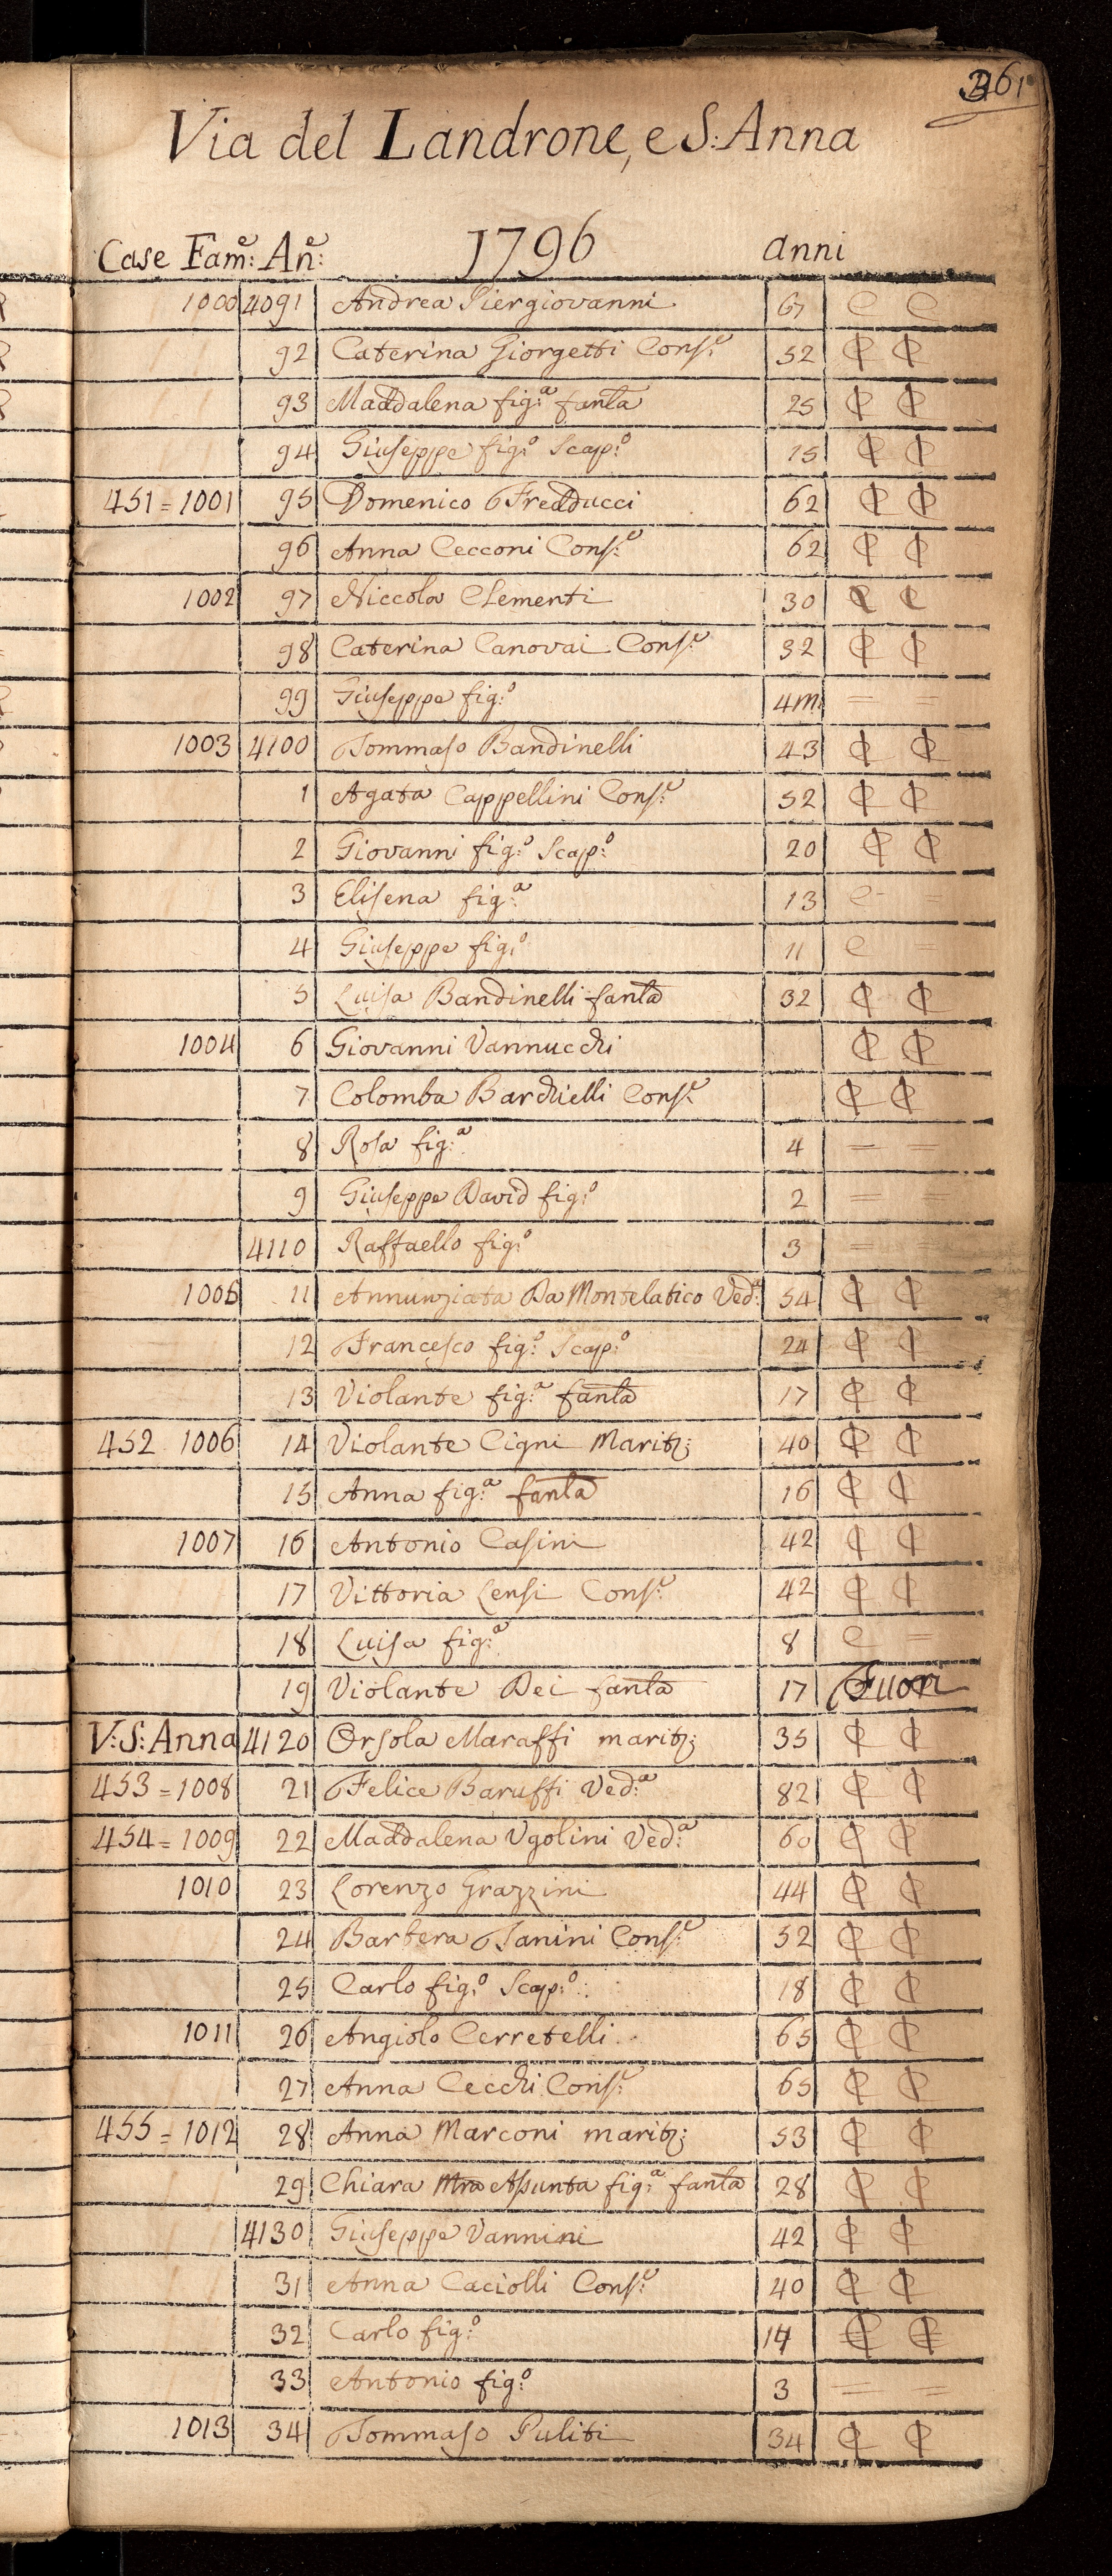 361
Via del Landrone, e S: Anna
Case Fam:e An:e 1796 anni
1000 4091 Andrea Piergiovanni 67 C C
92 Caterina Giorgetti Cons:e 52 ₵ ₵
93 Maddalena fig:a fanla 25 ₵ ₵
94 Giuseppe fig:o Scap:o 15 ₵ ₵
451 = 1001 95 Domenico Fredducci 62 ₵ ₵
96 Anna Cecconi Cons:e 62 ₵ ₵
1002 97 Niccola Clementi 30 C C
98 Caterina Canovai Cons:e 32 ₵ ₵
99 Giuseppe fig:o 4m = =
1003 4100 Tommaso Bandinelli 43 ₵ ₵
1 Agata Cappellini Cons:e 52 ₵ ₵
2 Giovanni fig:o Scap:o 20 ₵ ₵
3 Elisena fig:a 13 C =
4 Giuseppe fig:o 11 C
5 Luisa Bandinelli fanla 32 ₵ ₵
1004 6 Giovanni Vannucchi ₵ ₵
7 Colomba Barchielli Cons:e ₵ ₵
8 Rosa fig:a 4 = =
9 Giuseppe David fig:o 2 = =
4110 Raffaello fig:o 3 =
1005 11 Annunziata Da Montelatico Ved:a 54 ₵ ₵
12 Francesco fig:o Scap:o 24 ₵ ₵
13 Violante fig:a fanla 17 ₵ ₵
452 1006 14 Violante Cigni Marit: 40 ₵ ₵
15 Anna fig:a fanla 16 ₵ ₵
1007 16 Antonio Casini 42 ₵ ₵
17 Vittoria Lensi Cons:e 42 ₵ ₵
18 Luisa fig:a 8 C =
19 Violante Dei fanla 17 Fuori
V: S: Anna 4120 Orsola Maraffi marit: 35 ₵ ₵
453 = 1008 21 Felice Baruffi Ved:a 82 ₵ ₵
454 = 1009 22 Maddalena Ugolini Ved:a 60 ₵ ₵
1010 23 Lorenzo Grazzini 44 ₵ ₵
24 Barbera Tanini Cons:e 52 ₵ ₵
25 Carlo fig:o Scap:o 18 ₵ ₵
1011 26 Angiolo Cerretelli 65 ₵ ₵
27 Anna Cecchi Cons:e 65 ₵ ₵
455 = 1012 28 Anna Marconi marit: 53 ₵ ₵
29 Chiara Mra Assunta fig:a fanla 28 ₵ ₵
4130 Giuseppe Vannini 42 ₵ ₵
31 Anna Caciolli Cons:e 40 ₵ ₵
32 Carlo fig:o 14 ₵ ₵
33 Antonio fig:o 3 = =
1013 34 Tommaso Puliti 34 ₵ ₵